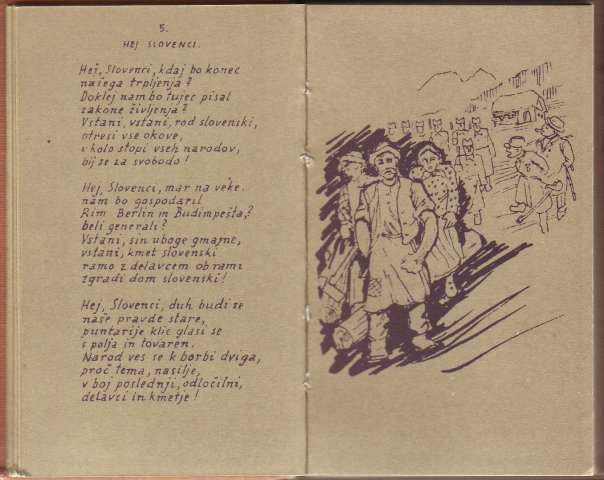 5.
HEJ SLOVENCI.
Hej, Slovenci, kdaj bo konec
našega trpljenja?
Doklej nam bo tujec pisal
zakone življenja?
Vstani, vstani, rod slovenski,
otresi vse okove,
v kolo stopi vseh narodov,
bij se za svobodo!
Hej, Slovenci, mar na veke.
nam bo gospodaril
Rim Berlin in Budimpešta,?
beli generali?
Vstani, sin uboge gmajne,
vstani, kmet slovenski
ramo z delavcem ob rami
zgradi dom slovenski!
Hej, Slovenci, duh budi se
naše pravde stare,
puntarije klic glasi se
s polja in tovaren.
Narod ves se k borbi dviga,
proč tema, nasilje,
v boj poslednji, odločilni,
delavci in kmetje!